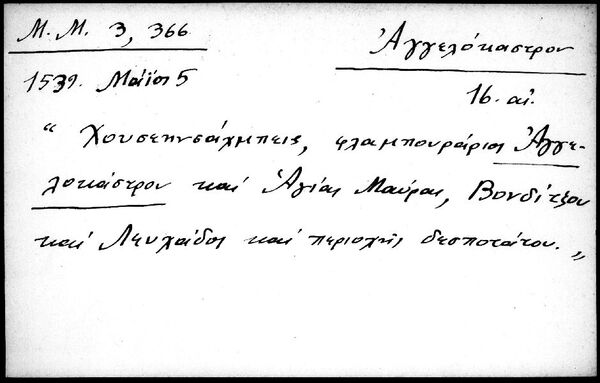 Μ. Μ. 3, 366
Ἀγγελόκαστρον
1539. Μάϊος 5
16. αἰ.
“ Χουσεηνσάχμπεις, φλαμπουράριος Ἀγγε-
λοκάστρου καί Ἁγίας Μαύρας, Βονδίτζου
καί Λευκάδος καί περιοχῆς δεσποτάτου. „